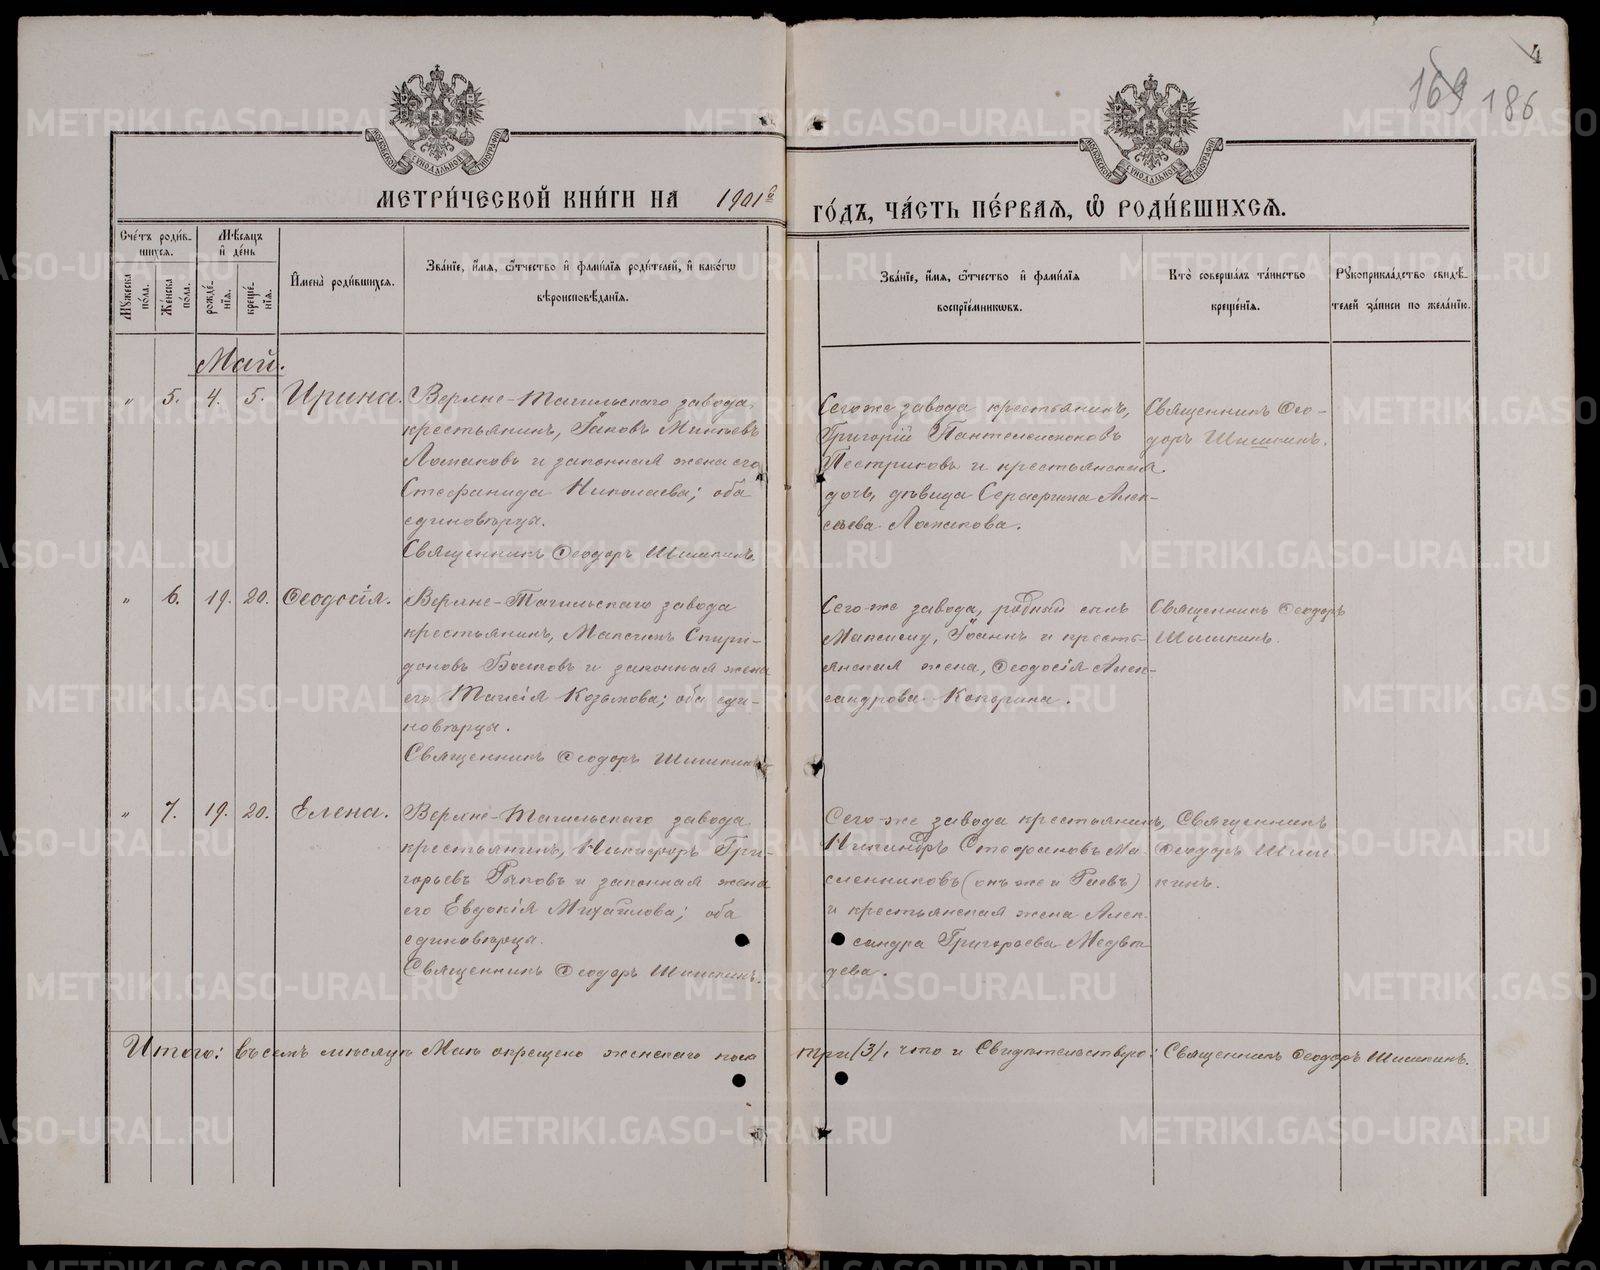 4
169 186
МОСКОВСКОЙ СѴНОДАЛЬНОЙ ТИПОГРАФІИ
МОСКОВСКОЙ СѴНОДАЛЬНОЙ ТИПОГРАФІИ
МЕТРИ́ЧЕСКОЙ КНИ́ГИ НА 1901й ГО́ДЪ, ЧА́СТЬ ПЕ́РВАЯ, Ѡ РОДИ́ВШИХСЯ.
Сче́тъ роди́в-
шихся.
Мѣ́сяцъ
и де́нь
Му́жеска
по́ла.
Же́нска
по́ла.
рожде́-
нія.
креще́-
нія.
Имена̀ роди́вшихся.
Зва́ніе, и́мя, ѻ́тчество и фами́лія роди́телей, и како́гѡ
вѣроисповѣ́данія.
Зва́ніе, и́мя, ѻ́тчество и фами́лія
воспріе́мникѡвъ.
Кто̀ соверша́лъ та́инство
креще́нія.
Рꙋкоприкла́дство свидѣ́-
телей за́писи по жела́нію.
Май.
" 5. 4. 5. Ирина.
Верхне-Тагильскаго завода
крестьянинъ, Іаковъ Михѣевъ
Ломаковъ и законная жена его
Стефанида Николаева; оба
единовѣрцы.
Священникъ Ѳеодоръ Шишкинъ.
Сего же завода крестьянинъ,
Григорій Пантелеимоновъ
Пестриковъ и крестьянская
дочь, дѣвица Серафима Алек-
сѣева Ломакова.
Священникъ Ѳео-
доръ Шишкинъ.
" 6. 19. 20. Ѳеодосія.
Верхне-Тагильскаго завода
крестьянинъ, Максимъ Спири-
доновъ и законная жена
его Таисія Козьмова; оба еди-
новѣрцы.
Священникъ Ѳеодоръ Шишкинъ
Сего-же завода, родный сынъ
Максиму, Іоаннъ и кресть-
янская жена, Ѳеодосія Алек-
сандрова
Священникъ Ѳеодоръ
Шишкинъ.
" 7. 19. 20. Елена.
Верхне-Тагильскаго завода
крестьянинъ, Никифоръ Гри-
горьевъ и законная жена
его Евдокія Михайлова; оба
единовѣрцы.
Священникъ Ѳеодоръ Шишкинъ.
Сего-же завода крестьянинъ,
Никандръ Стефановъ Ма-
сленниковъ (онъ же и Раевъ)
и крестьянская жена Алек-
сандра Григорьева Медвѣ-
дева.
Священникъ
Ѳеодоръ Шиш-
кинъ.
Итого: въ семъ мѣсяцѣ Маѣ окрещено женскаго пола три /3/, что и Свидѣтельствую: Священникъ Ѳеодоръ Шишкинъ.
METRIKI.GASO-URAL.RU